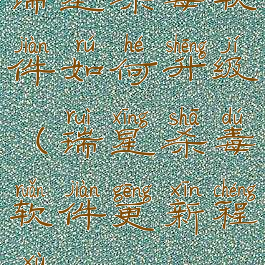 瑞星杀毒软
jiàn rú hé shēng jí
件如何升级
ruì xīng shā dú
（瑞星杀毒
ruǎn jiàn gēng xīn chéng
软件更新程
xù